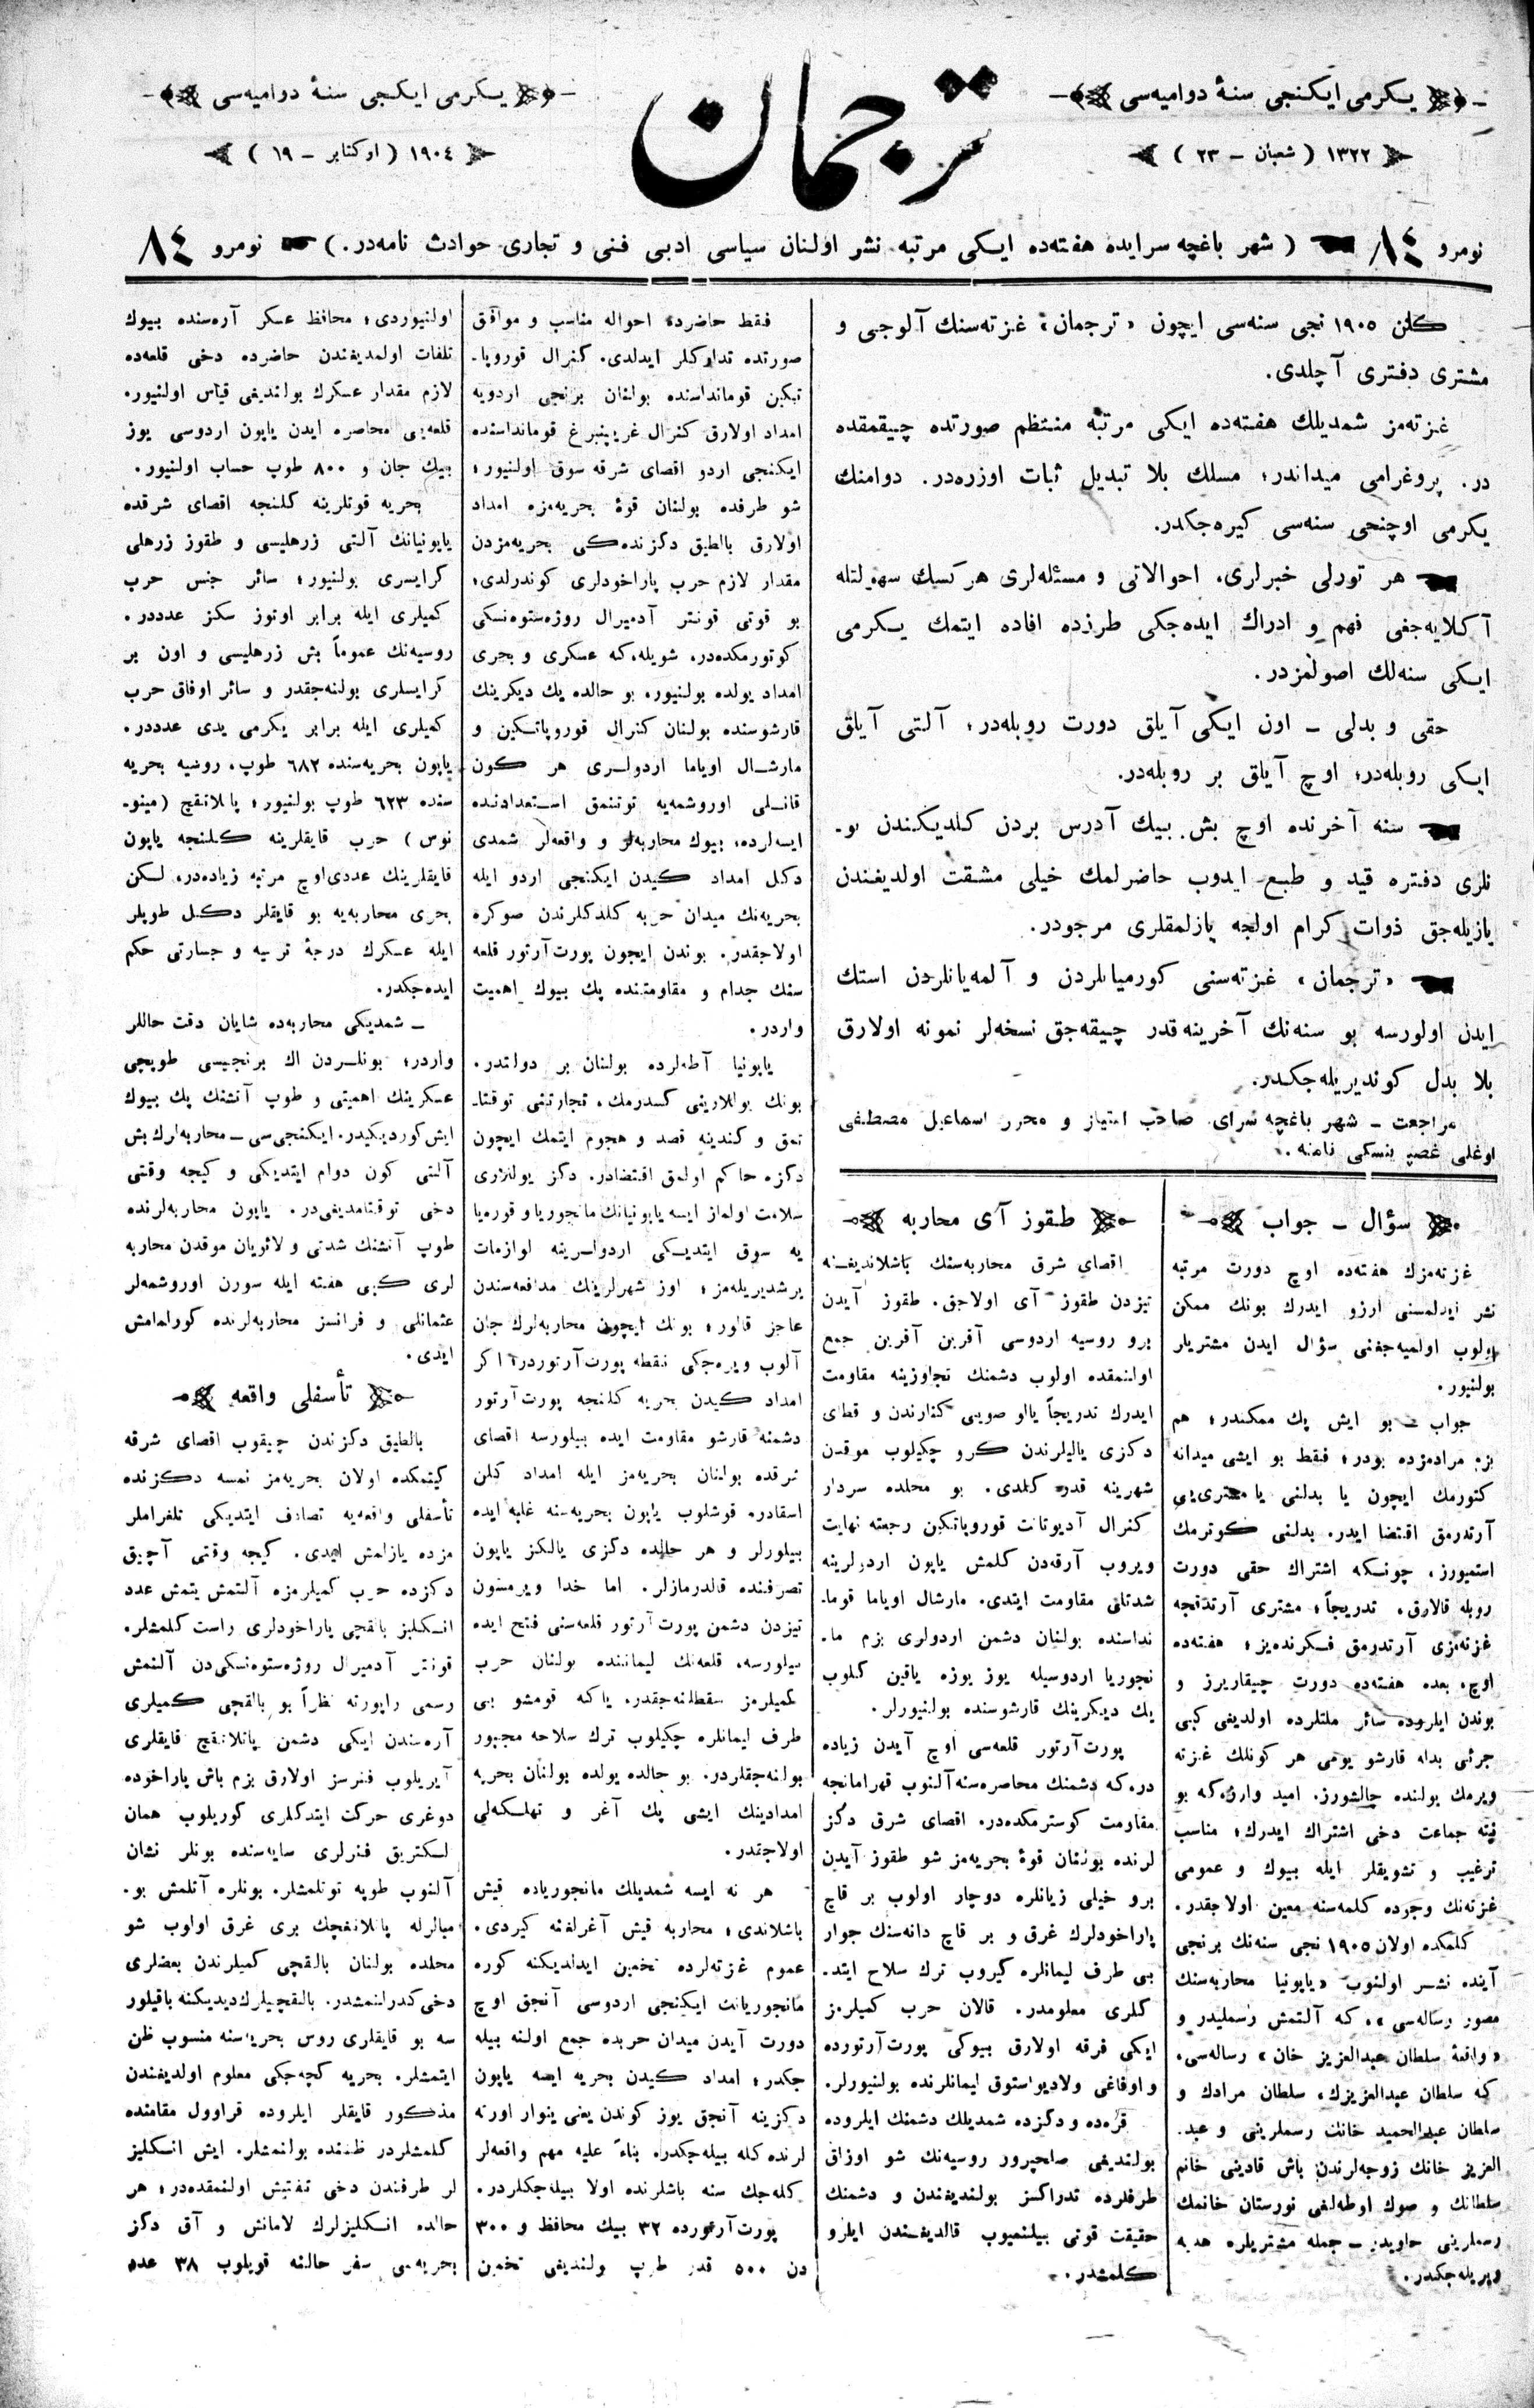 يكرمی ايكنجی سنۀ دواميه‌سی
۱۳۲۲ ( شعبان ــ ۲۳ )
ترجمان
يكرمی ايكنجی سنۀ دواميه‌سی
۱۹۰٤ ( اوكتابر ــ ۱۹ )
نومرو ٨٤ ( شهر باغچه سرايده هفته‌ده ايكی مرتبه نشر اولنان سياسی ادبی فنی و تجاری حوادث نامه‌در. ) نومرو ٨٤
كلن ۱۹۰٥ نجی سنه‌سی ايچون «ترجمان» غزته‌سنك آلوجی و
مشتری دفتری آچلدی.
غزته‌مز شمديلك هفته‌ده ايكی مرتبه منتظم صورتده چيقمقده
در. پروغرامی ميداندر؛ مسلك بلا تبديل ثبات اوزره‌در. دوامنك
يكرمی اوچنجی سنه‌سی كيره‌جكدر.
هر تورلی خبرلری، احوالاتی و مسئله‌لری هر كسك سهولتله
آكلايه‌جغی فهم و ادراك ايده‌جكی طرزده افاده ايتمك يكرمی
ايكی سنه‌لك اصولمزدر.
حقی و بدلی ــ اون ايكی آيلق دورت روبله‌در؛ آلتی آيلق
ايكی روبله‌در؛ اوچ آيلق بر روبله‌در.
سنه آخرنده اوچ بش بيك آدرس بردن كلديكندن بو۔
نلری دفتره قيد و طبع ايدوب حاضرلمك خيلی مشقت اولديغندن
يازيله‌جق ذوات كرام اولجه يازلمقلری مرجودر.
«ترجمان» غزته‌سنی كورميانلردن و آلمه‌يانلردن استك
ايدن اولورسه بو سنه‌نك آخرينه قدر چيقه‌جق نسخه‌لر نمونه اولارق
بلا بدل كونديريله‌جكدر.
مراجعت ــ شهر باغچه سرای صاحب امتياز و محرر اسماعيل مصطفی
اوغلی غصپرينسكی نامنه.
سؤال ــ جواب
غزته‌مزك هفته‌ده اوچ دورت مرتبه
نشر ايدلمسنی ارزو ايدرك بونك ممكن
اولوب اولميه‌جغنی سؤال ايدن مشتريلر
بولنيور.
جواب ــ بو ايش پك ممكندر؛ هم
بزم مرادمزده بودر؛ فقط بو ايشی ميدانه
كتورمك ايچون يا بدلنی يا مشتری‌يی
آرتدرمق اقتضا ايدر. بدلنی كوترمك
استميورز، چونكه اشتراك حقی دورت
روبله قالارق، تدريجاً؛ مشتری آرتدقجه
غزته‌مزی آرتدرمق فكرنده‌يز؛ هفته‌ده
اوچ، بعده هفته‌ده دورت چيقاريرز و
بوندن ايلروده سائر ملتلرده اولديغی كبی
جرئی بدله قارشو يومی هر كونلك غزته
ويرمك يولنده چالشورز. اميد واركه بو
نيته جماعت دخی اشتراك ايدرك؛ مناسب
ترغيب و تشويقلر ايله بيوك و عمومی
غزته‌نك وجوده كلمه‌سنه معين اولاجقدر.
كلمكده اولان ۱۹۰٥ نجی سنه‌نك برنجی
آينده نشر اولنوب «ياپونيا محاربه‌سنك
مصور رساله‌سی»، كه آلتمش رسمليدر و
«واقعۀ سلطان عبدالعزيز خان» رساله‌سی،
كه سلطان عبدالعزيزك، سلطان مرادك و
سلطان عبدالحميد خانك رسملرينی و عبد۔
العزيز خانك زوجه‌لرندن باش قادينی خانم
سلطانك و صوك اوطه‌لغی نورستان خانمك
رسملرينی حاويدر ــ جمله مشتريلره هديه
ويريله‌جكدر.
طقوز آی محاربه
اقصای شرق محاربه‌سنك باشلانديغنه
تيزدن طقوز آی اولاجق. طقوز آيدن
برو روسيه اردوسی آفرين آفرين جمع
اولنمقده اولوب دشمنك تجاوزينه مقاومت
ايدرك تدريجاً يالو صويی كنارندن و قطای
دكزی ياليلرندن كرو چكيلوب موقدن
شهرينه قدر كلدی. بو محلده سردار
كنرال آديوتانت قوروپاتكين رجعته نهايت
ويروب آرقه‌دن كلمش ياپون اردولرينه
شدتلی مقاومت ايتدی. مارشال اوياما قوما۔
نداسنده بولنان دشمن اردولری بزم ما۔
نجوريا اردوسيله يوز يوزه ياقين كلوب
يك ديكرينك قارشوسنده بولنيورلر.
پورت آرتور قلعه‌سی اوچ آيدن زياده
دركه دشمنك محاصره‌سنه آلنوب قهرامانجه
مقاومت كوسترمكده‌در. اقصای شرق دكز
لرنده بولنان قوۀ بحريه‌مز شو طقوز آيدن
برو خيلی زيانلره دوچار اولوب بر قاچ
پاراخودلرك غرق و بر قاچ دانه‌سنك جوار
بی طرف ليمانلره كيروب ترك سلاح ايتد۔
كلری معلومدر. قالان حرب كميلرمز
ايكی فرقه اولارق بيوكی پورت آرتورده
و اوفاغی ولاديواستوق ليمانلرنده بولنيورلر.
قره‌ده و دكزده شمديلك دشمنك ايلروده
بولنديغی صلحپرور روسيه‌نك شو اوزاق
طرفلرده تداركسز بولنديغندن و دشمنك
حقيقت قوتی بيلنميوب قالديغندن ايلرو
كلمشدر.
فقط حاضرده احواله مناسب و موافق
صورتده تداركلر ايدلدی. كنرال قوروپا۔
تكين قومانداسنده بولنان برنجی اردويه
امداد اولارق كنرال غريپنبرغ قومانداسنده
ايكنجی اردو اقصای شرقه سوق اولنيور؛
شو طرفده بولنان قوۀ بحريه‌مزه امداد
اولارق بالطيق دكزنده‌كی بحريه‌مزدن
مقدار لازم حرب پاراخودلری كوندرلدی؛
بو قوتی قونتر آدميرال روژه‌ستوه‌نسكی
كوتورمكده‌در. شويله‌كه عسكری و بحری
امداد يولده بولنيور. بو حالده يك ديكرينك
قارشوسنده بولنان كنرال قوروپاتكين و
مارشال اوياما اردولری هر كون
قانلی اوروشمه‌يه توتنمق استعدادنده
ايسه‌لرده، بيوك محاربه‌لر و واقعه‌لر شمدی
دكل امداد كيدن ايكنجی اردو ايله
بحريه‌نك ميدان حربه كلدكلرندن صوكره
اولاجقدر. بوندن ايچون پورت آرتور قلعه
سنك جدام و مقاومتنده پك بيوك اهميت
واردر.
ياپونيا آطه‌لرده بولنان بر دولتدر.
بونك يوللارينی كسدرمك، تجارتنی توقتا۔
تمق و كندينه قصد و هجوم ايتمك ايچون
دكزه حاكم اولمق اقتضادر. دكز يوللاری
سلامت اولماز ايسه ياپونيانك مانجوريا و قوره‌يا
يه سوق ايتديكی اردولرينه لوازمات
يرشديريله‌مز؛ اوز شهرلرينك مدافعه‌سندن
عاجز قالور؛ بونك ايچون محاربه‌لرك جان
آلوب ويره‌جكی نقطه پورت آرتوردر؛ اكر
امداد كيدن بحريه كلنجه پورت آرتور
دشمنه قارشو مقاومت ايده بيلورسه اقصای
شرقده بولنان بحريه‌مز ايله امداد كلن
اسقادره قوشلوب ياپون بحريه‌سنه غلبه ايده
بيلورلر و هر حالده دكزی يالكز ياپون
تصرفنده قالدرمازلر. اما خدا ويرمسون
تيزدن دشمن پورت آرتور قلعه‌سنی فتح ايده
بيلورسه، قلعه‌نك ليماننده بولنان حرب
كميلرمز سقطلنه‌جقدر، ياكه قومشو بی
طرف ليمانلره چكيلوب ترك سلاحه مجبور
بولنه‌جقلردر. بو حالده يولده بولنان بحريه
امدادينك ايشی پك آغر و تهلكه‌لی
اولاجقدر.
هر نه ايسه شمديلك مانجورياده قيش
باشلاندی؛ محاربه قيش آغرلغنه كيردی.
عموم غزته‌لرده تخمين ايدلديكنه كوره
مانجوريانك ايكنجی اردوسی آنجق اوچ
دورت آيدن ميدان حربده جمع اولنه بيله
جكدر؛ امداد كيدن بحريه ايسه ياپون
دكزينه آنجق يوز كوندن يعنی ينوار اورته
لرنده كله بيله‌جكدر. بناءً عليه مهم واقعه‌لر
كله‌جك سنه باشلرنده اولا بيله‌جكلردر.
پورت آرتورده ۳۲ بيك محافظ و ۳۰۰
دن ٥۰۰ قدر طوپ بولنديغی تخمين
اولنيوردی؛ محافظ عسكر آره‌سنده بيوك
تلفات اولمديغندن حاضرده دخی قلعه‌ده
لازم مقدار عسكرك بولنديغی قياس اولنيور.
قلعه‌يی محاصره ايدن ياپون اردوسی يوز
بيك جان و ٨۰۰ طوپ حساب اولنيور.
بحريه قوتلرينه كلنجه اقصای شرقده
ياپونيانك آلتی زرهليسی و طقوز زرهلی
كرايسری بولنيور؛ سائر جنس حرب
كميلری ايله برابر اوتوز سكز عدددر.
روسيه‌نك عموماً بش زرهليسی و اون بر
كرايسلری بولنه‌جقدر و سائر اوفاق حرب
كميلری ايله برابر يكرمی يدی عدددر.
ياپون بحريه‌سنده ٦٨۲ طوپ، روسيه بحريه
سنده ٦۲۳ طوپ بولنيور؛ پالانقچ (مينو۔
نوس ) حرب قايقلرينه كلنجه ياپون
قايقلرينك عددی اوچ مرتبه زياده‌در، لكن
بحری محاربه‌يه بو قايقلر دكل طوپلر
ايله عسكرك درجۀ تربيه و جسارتی حكم
ايده‌جكدر.
ــ شمديكی محاربه‌ده شايان دقت حاللر
واردر؛ بونلردن اك برنجيسی طوپچی
عسكرينك اهميتی و طوپ آتشنك پك بيوك
ايش كورديكيدر. ايكنجی‌سی ــ محاربه‌لرك بش
آلتی كون دوام ايتديكی و كيجه وقتی
دخی توقتامديغی‌در. ياپون محاربه‌لرنده
طوپ آتشنك شدتی و لائويان موقدن محاربه
لری كبی هفته ايله سورن اوروشمه‌لر
عثمانلی و فرانسز محاربه‌لرنده كورلمامش
ايدی.
تأسفلی واقعه
بالطيق دكزندن چيقوب اقصای شرقه
كيتمكده اولان بحريه‌مز نمسه دكزنده
تأسفلی واقعه‌يه تصادف ايتديكی تلغراملر
مزده يازلمش ايدی. كيجه وقتی آچيق
دكزده حرب كميلرمزه آلتمش يتمش عدد
انكليز بالقچی پاراخودلری راست كلمشلر.
قونتر آدميرال روژه‌ستوه‌نسكی‌دن آلنمش
رسمی راپورته نظراً بو بالقچی كميلری
آره‌سندن ايكی دشمن پالانقچ قايقلری
آيريلوب فنرسز اولارق بزم باش پاراخوده
دوغری حركت ايتدكلری كوريلوب همان
لكتريق فنرلری سايه‌سنده بونلر نشان
آلنوب طوپه توتلمشلر. بونلره آتلمش بو۔
مبالرله پالانقچك بری غرق اولوب شو
محلده بولنان بالقچی كميلرندن بعضلری
دخی كدرلنمشدر. بالقچيلرك ديديكنه باقيلور
سه بو قايقلری روس بحريه‌سنه منسوب ظن
ايتمشلر. بحريه كچه‌جكی معلوم اولديغندن
مذكور قايقلر ايلروده قراوول مقامنده
كلمشلردر ظننده بولنمشلر. ايش انكليز
لر طرفندن دخی تفتيش اولنمقده‌در؛ هر
حالده انكليزلرك لامانش و آق دكز
بحريه‌سی سفر حالنه قويلوب ۳٨ عدد